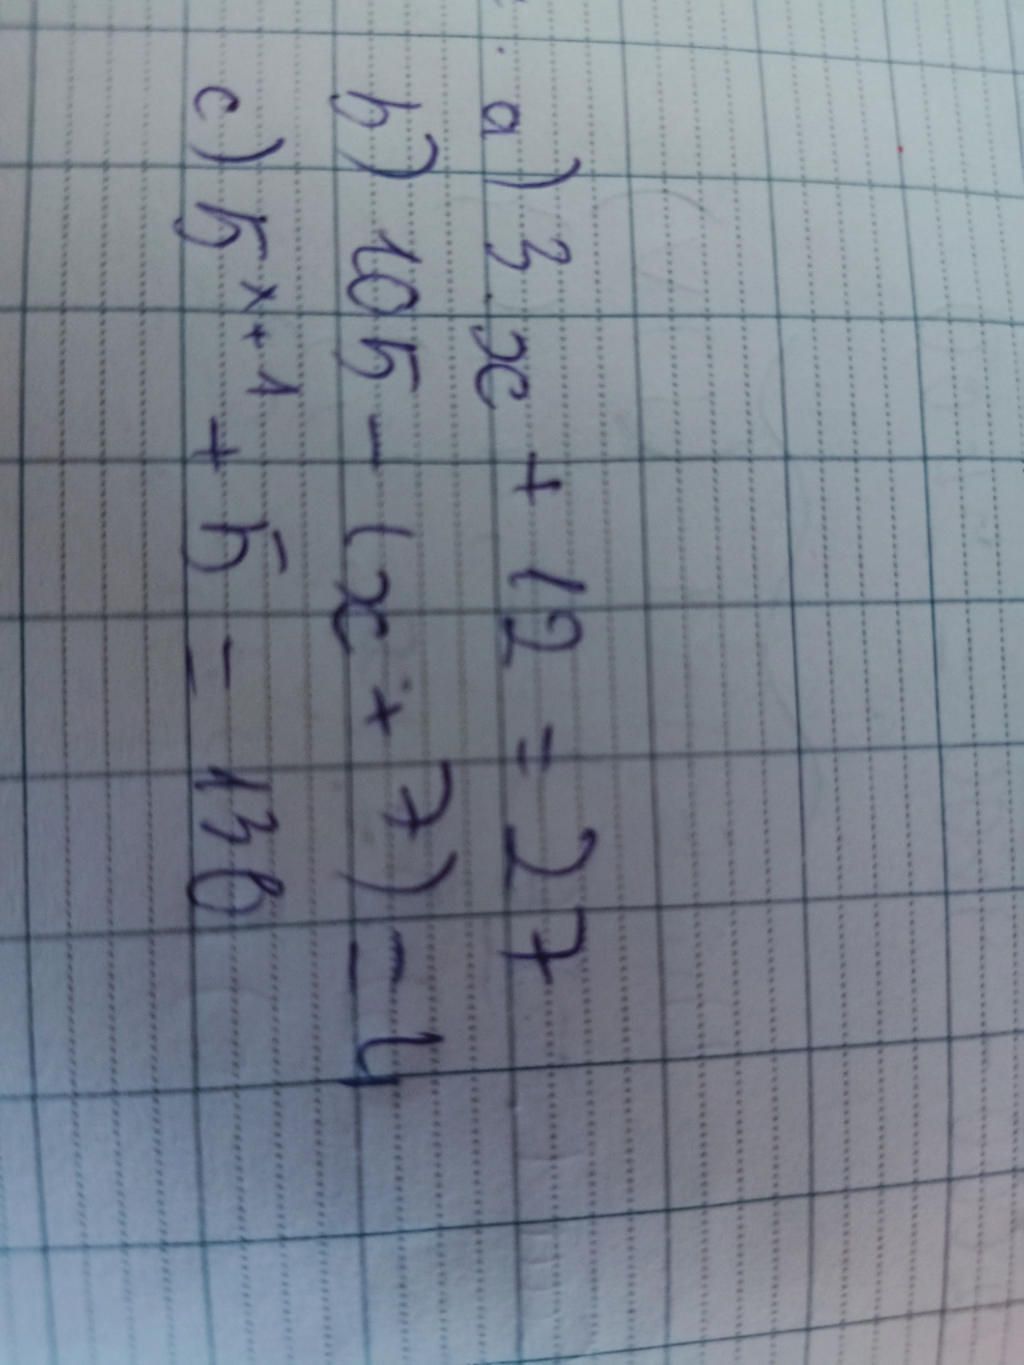 a) 3.x + 12 = 27
b) 105 - (x + 7) = 4
c) 5^{x+1} + 5 = 130